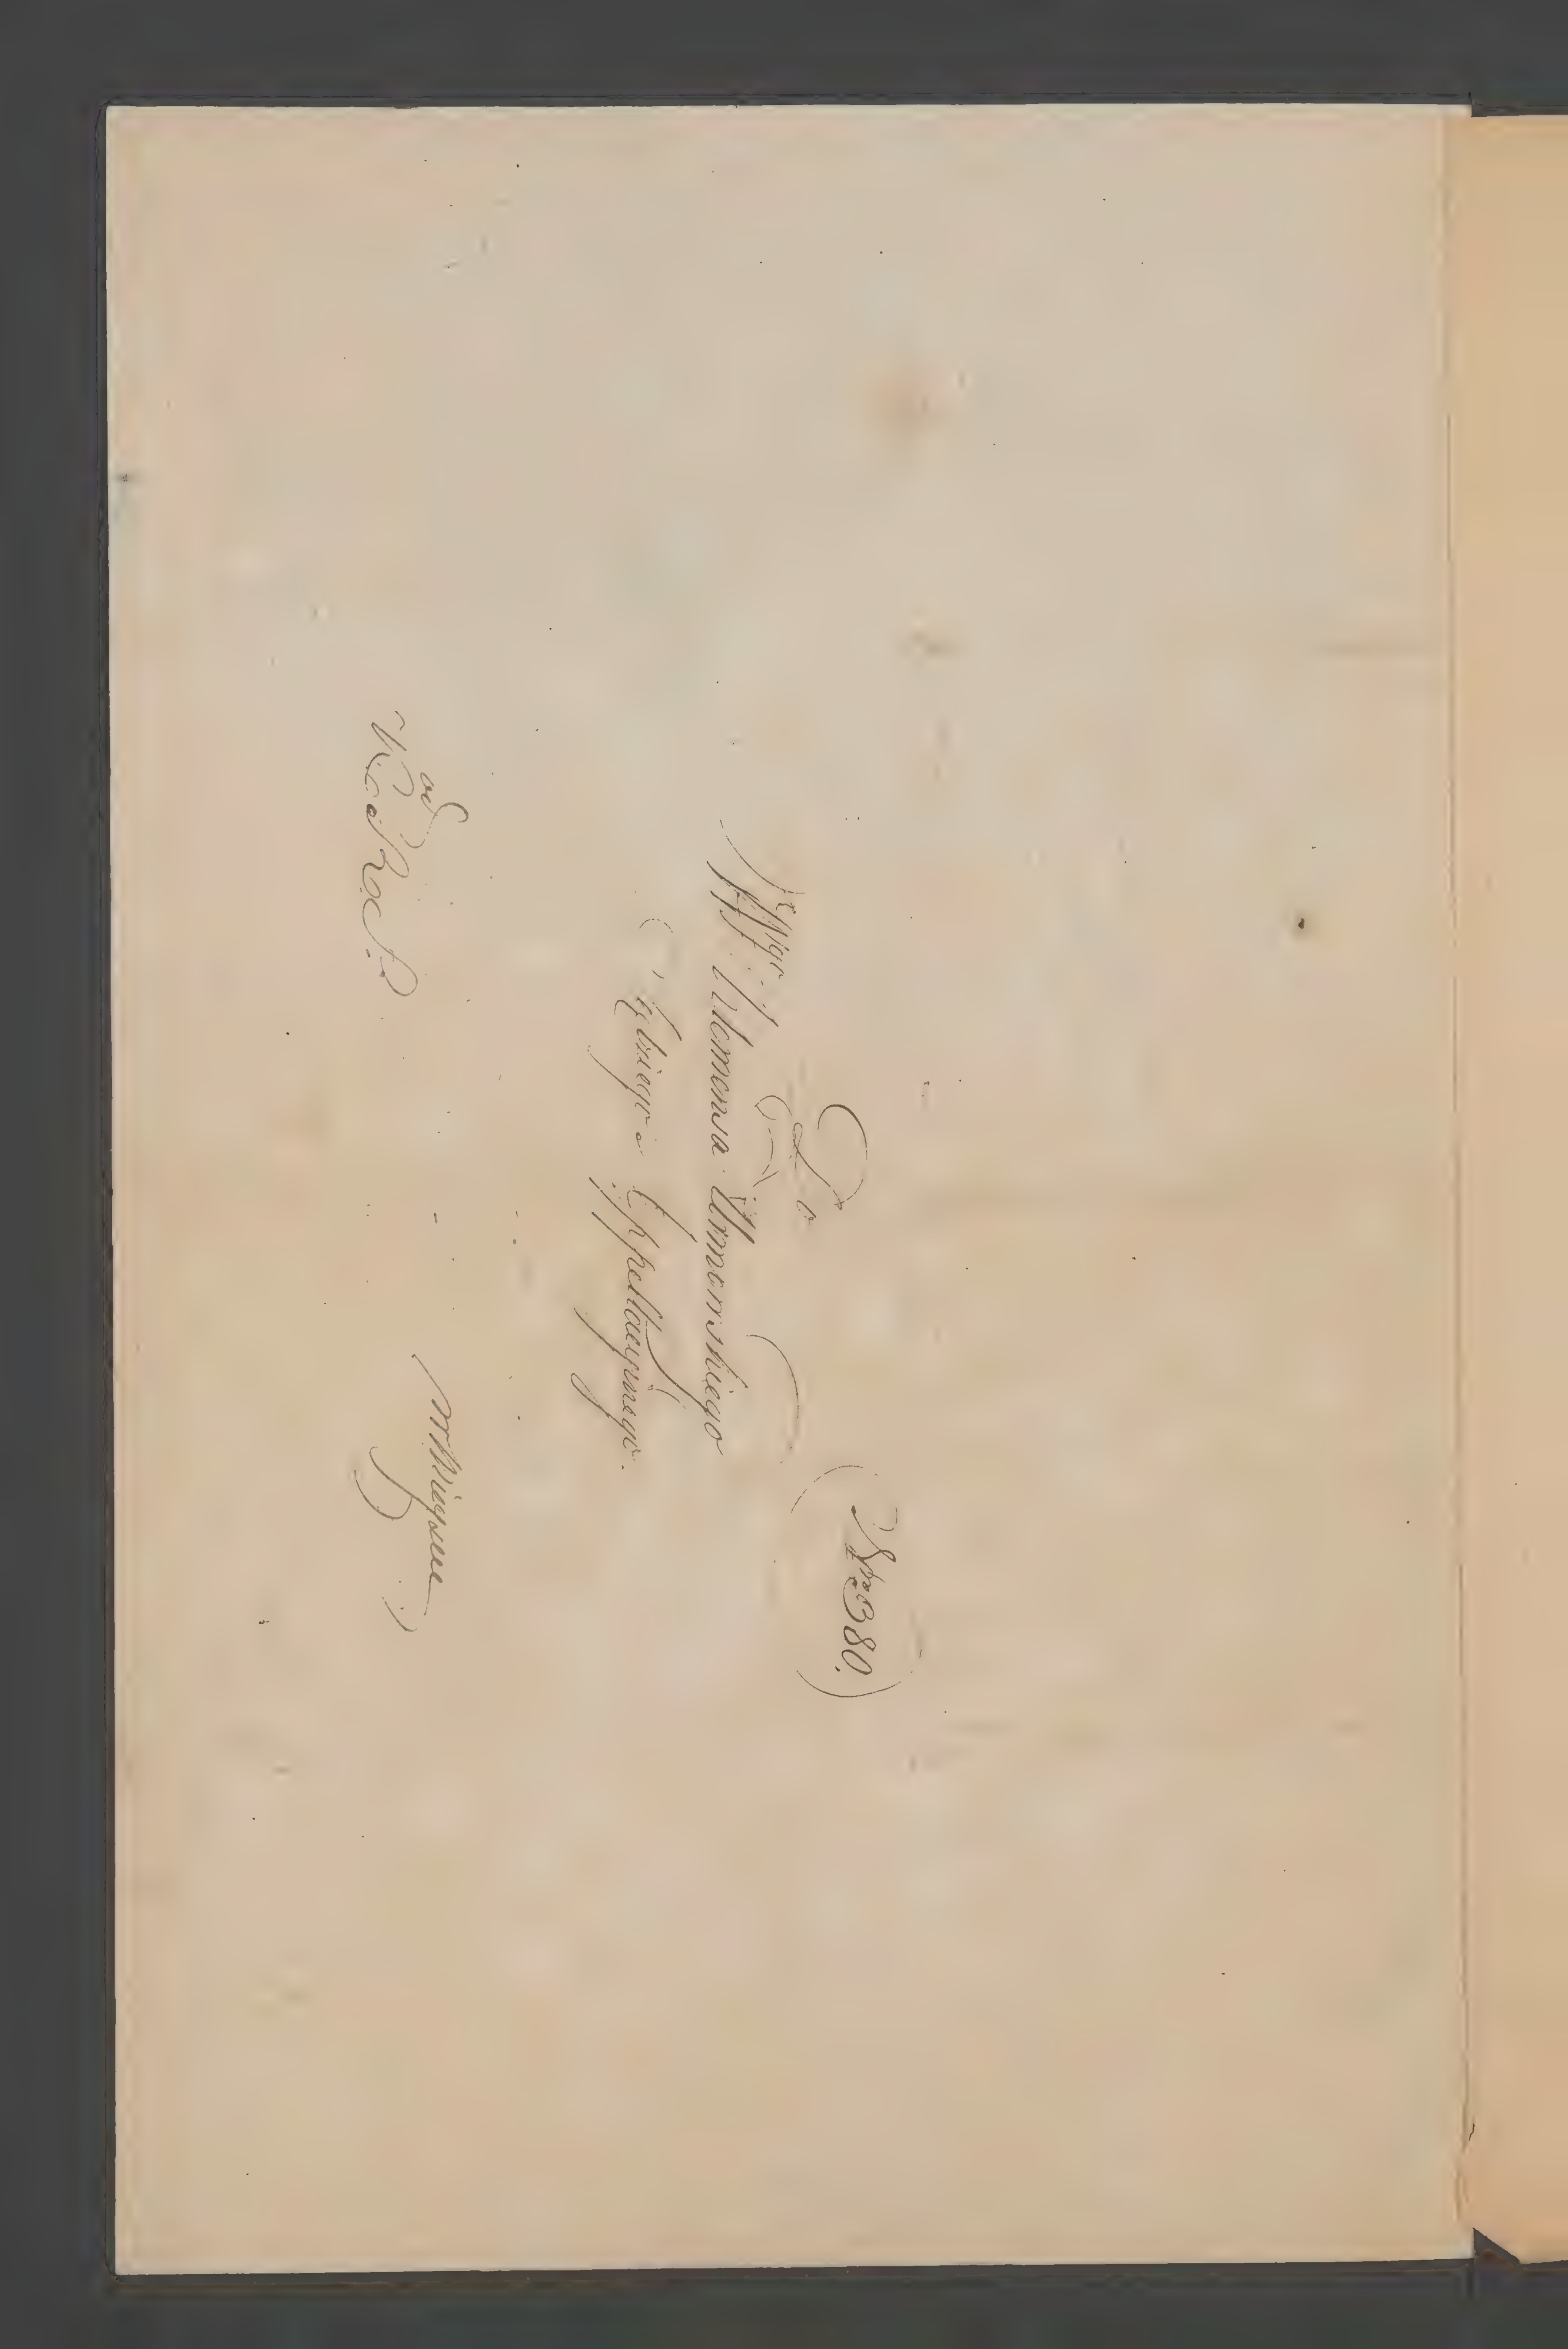 (№ 380.)
Do
JW Klemensa Urmowskiego
Sędziego Appellacyjnego.
od
w Mieyscu